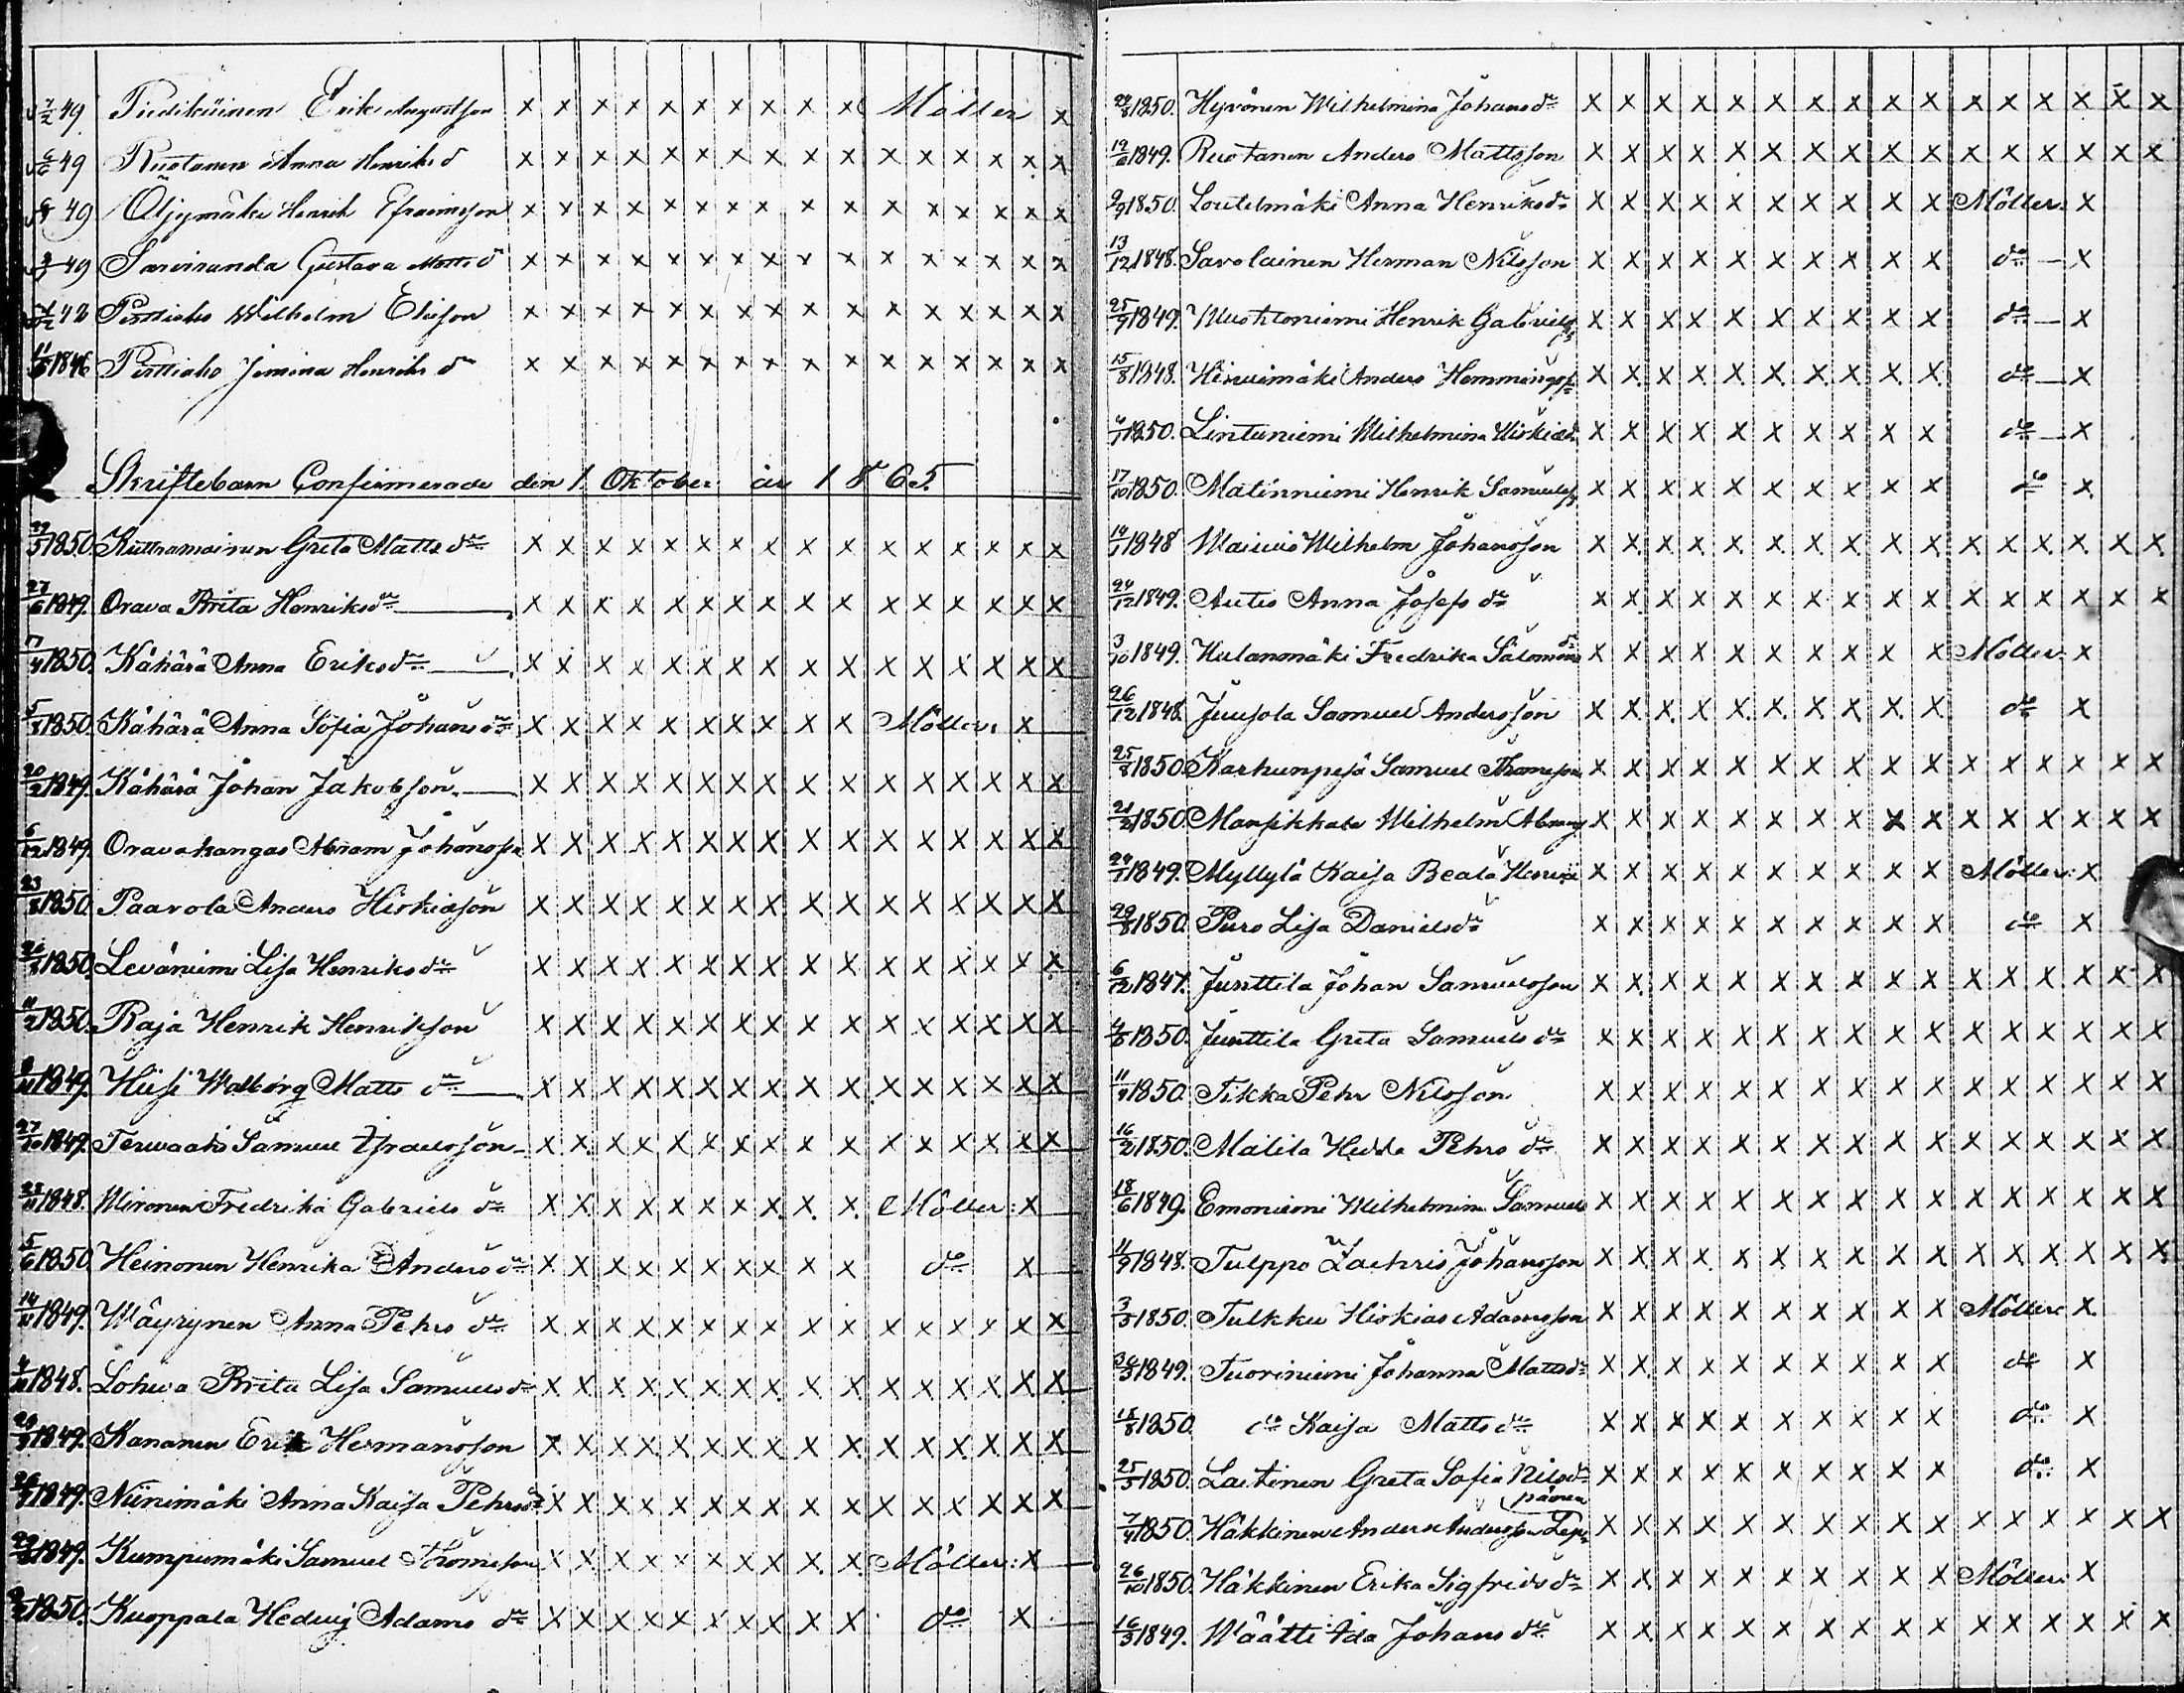 7/2 49 Erik Augustsson x x x x x x x x x x Möller x
49 Ruotanen Anna Henriks d x x x x x x x x x x x x x x x x
49 Öljymäki Henrik Efraimsson x x x x x x x x x x x x x x x x
49 Gustava Matts d x x x x x x x x x x x x x x x x
42 Perttiaho Wilhelm Eliasson x x x x x x x x x x x x x x x x
1846 Perttiaho Henriks d x x x x x x x x x x x x x x x x
Skriftebarn Confirmerade den 1. Oktober år 1865.
1850. Greta Matts dr x x x x x x x x x x x x x x x x
27/6 1849. Orava Brita Henriksdr x x x x x x x x x x x x x x x x
1850. Kähärä Anna Eriksdr x x x x x x x x x x x x x x x x
1850. Kähärä Anna Sofia Johansdr x x x x x x x x x x Möller: x
20/2 1849. Kähärä Johan Jakobsson x x x x x x x x x x x x x x x x
6/12 1849. Oravakangas Abram Johansson x x x x x x x x x x x x x x x x
1850. Paavola Anders Hiskiasson x x x x x x x x x x x x x x x x
1850. Leväniemi Lisa Henriksdr x x x x x x x x x x x x x x x x
11/2 1850. Raja Henrik Henriksson x x x x x x x x x x x x x x x x
1849. Hiisi Walborg Matts dr x x x x x x x x x x x x x x x x
27/10 1849. Terwaaho Samuel Israelsson x x x x x x x x x x x x x x x x
1848. Mironen Fredrika Gabriels dr x x x x x x x x x x Möller: x
5/6 1850. Heinonen Henrika Anders dr x x x x x x x x x x do x
1849. Wäyrynen Anna Pehrs dr x x x x x x x x x x x x x x x x
1848. Lohwa Brita Lisa Samuels dr x x x x x x x x x x x x x x x x
1849. Kananen Erik Hermansson x x x x x x x x x x x x x x x x
1849. Niinimäki Anna Kaisa Pehrsdr x x x x x x x x x x x x x x x x
1849. Kumpumäki Samuel Thomasson x x x x x x x x x x Möller: x
1850. Kuoppala Hedvig Adams dr x x x x x x x x x x do x
1850. Hyvönen Wilhelmina Johans dr x x x x x x x x x x x x x x x x
1849. Ruotanen Anders Mattsson x x x x x x x x x x x x x x x x
1850. Loutelmäki Anna Henriksdr x x x x x x x x x x Möller: x
13/12 1848. Savolainen Herman Nilsson x x x x x x x x x x do x
25/9 1849. Henrik Gabrielss x x x x x x x x x x do x
15/8 1848. Hirvimäki Anders Hemmingss x x x x x x x x x x do x
1850. Lintuniemi Wilhelmina Hiskiasd x x x x x x x x x x do x
17/10 1850. Matinniemi Henrik Samuelss x x x x x x x x x x do x
1848 Wilhelm Johansson x x x x x x x x x x x x x x x x
24/12 1849. Autio Anna Josefs dr x x x x x x x x x x x x x x x x
3/10 1849. Kulanmäki Fredrika Salomons dr x x x x x x x x x x Möller: x
26/12 1848. Juusola Samuel Andersson x x x x x x x x x x do x
25/8 1850. Karhunpesä Samuel Thomasson x x x x x x x x x x x x x x x x
1850. Mansikkala Wilhelm x x x x x x x x x x x x x x x x
1849. Myllylä Kaisa Beata x x x x x x x x x x Möller: x
29/8 1850. Puro Lisa Danielsdr x x x x x x x x x x do x
6/12 1847. Junttila Johan Samuelsson x x x x x x x x x x x x x x x x
1850. Junttila Greta Samuels dr x x x x x x x x x x x x x x x x
1850. Tikka Pehr Nilsson x x x x x x x x x x x x x x x x
16/2 1850. Malila Hedda Pehrs dr x x x x x x x x x x x x x x x x
18/6 1849. Emoniemi Wilhelmina Samuels x x x x x x x x x x x x x x x x
11/9 1848. Tulppo Zachris Johansson x x x x x x x x x x x x x x x x
3/5 1850. Tulkku Hiskias Adamsson x x x x x x x x x x Möller x
1849. Tuoriniemi Johanna Mattsdr x x x x x x x x x x do x
15/8 1850. do Kaisa Matts dr x x x x x x x x x x do x
25/5 1850. Laitinen Greta Sofia Nilsdr x x x x x x x x x x do x
7/4 1850. Häkkinen Anders Andersson x x x x x x x x x x x x x x x x
26/10 1850. Häkkinen Erika Sigfrids dr x x x x x x x x x x Möller: x
16/3 1849. Wäätti Ida Johans dr x x x x x x x x x x x x x x x x